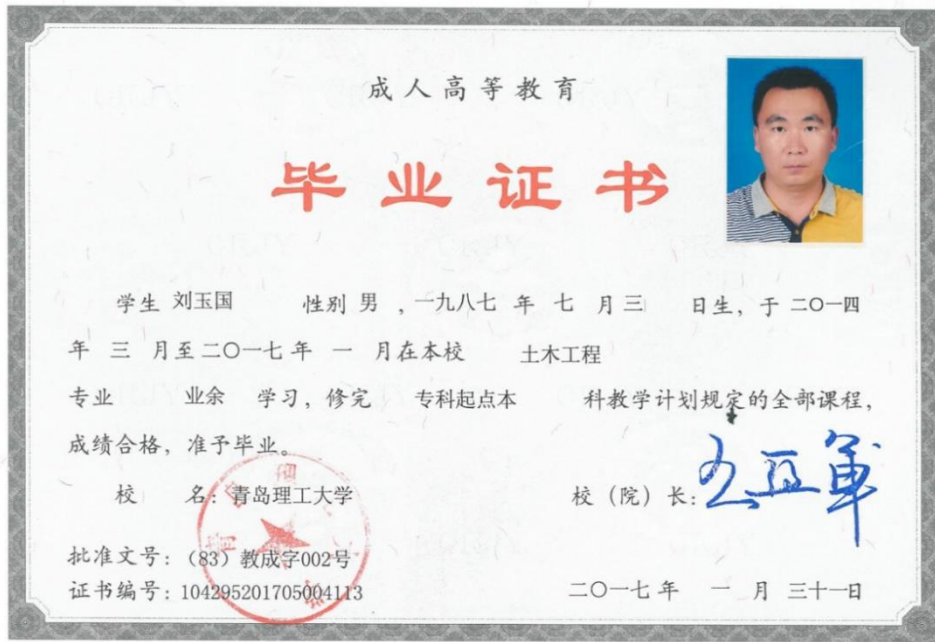 成人高等教育
毕业证书
学生 刘玉国 性别 男 ，一九八七 年 七 月 三 日生，于 二〇一四
年 三 月至 二〇一七 年 一 月在本校 土木工程
专业 业余 学习，修完 专科起点本 科教学计划规定的全部课程，
成绩合格，准予毕业。
校 名：青岛理工大学 校（院）长：
批准文号：（83）教成字002号
证书编号：104295201705004113 二〇一七 年 一 月 三十一日